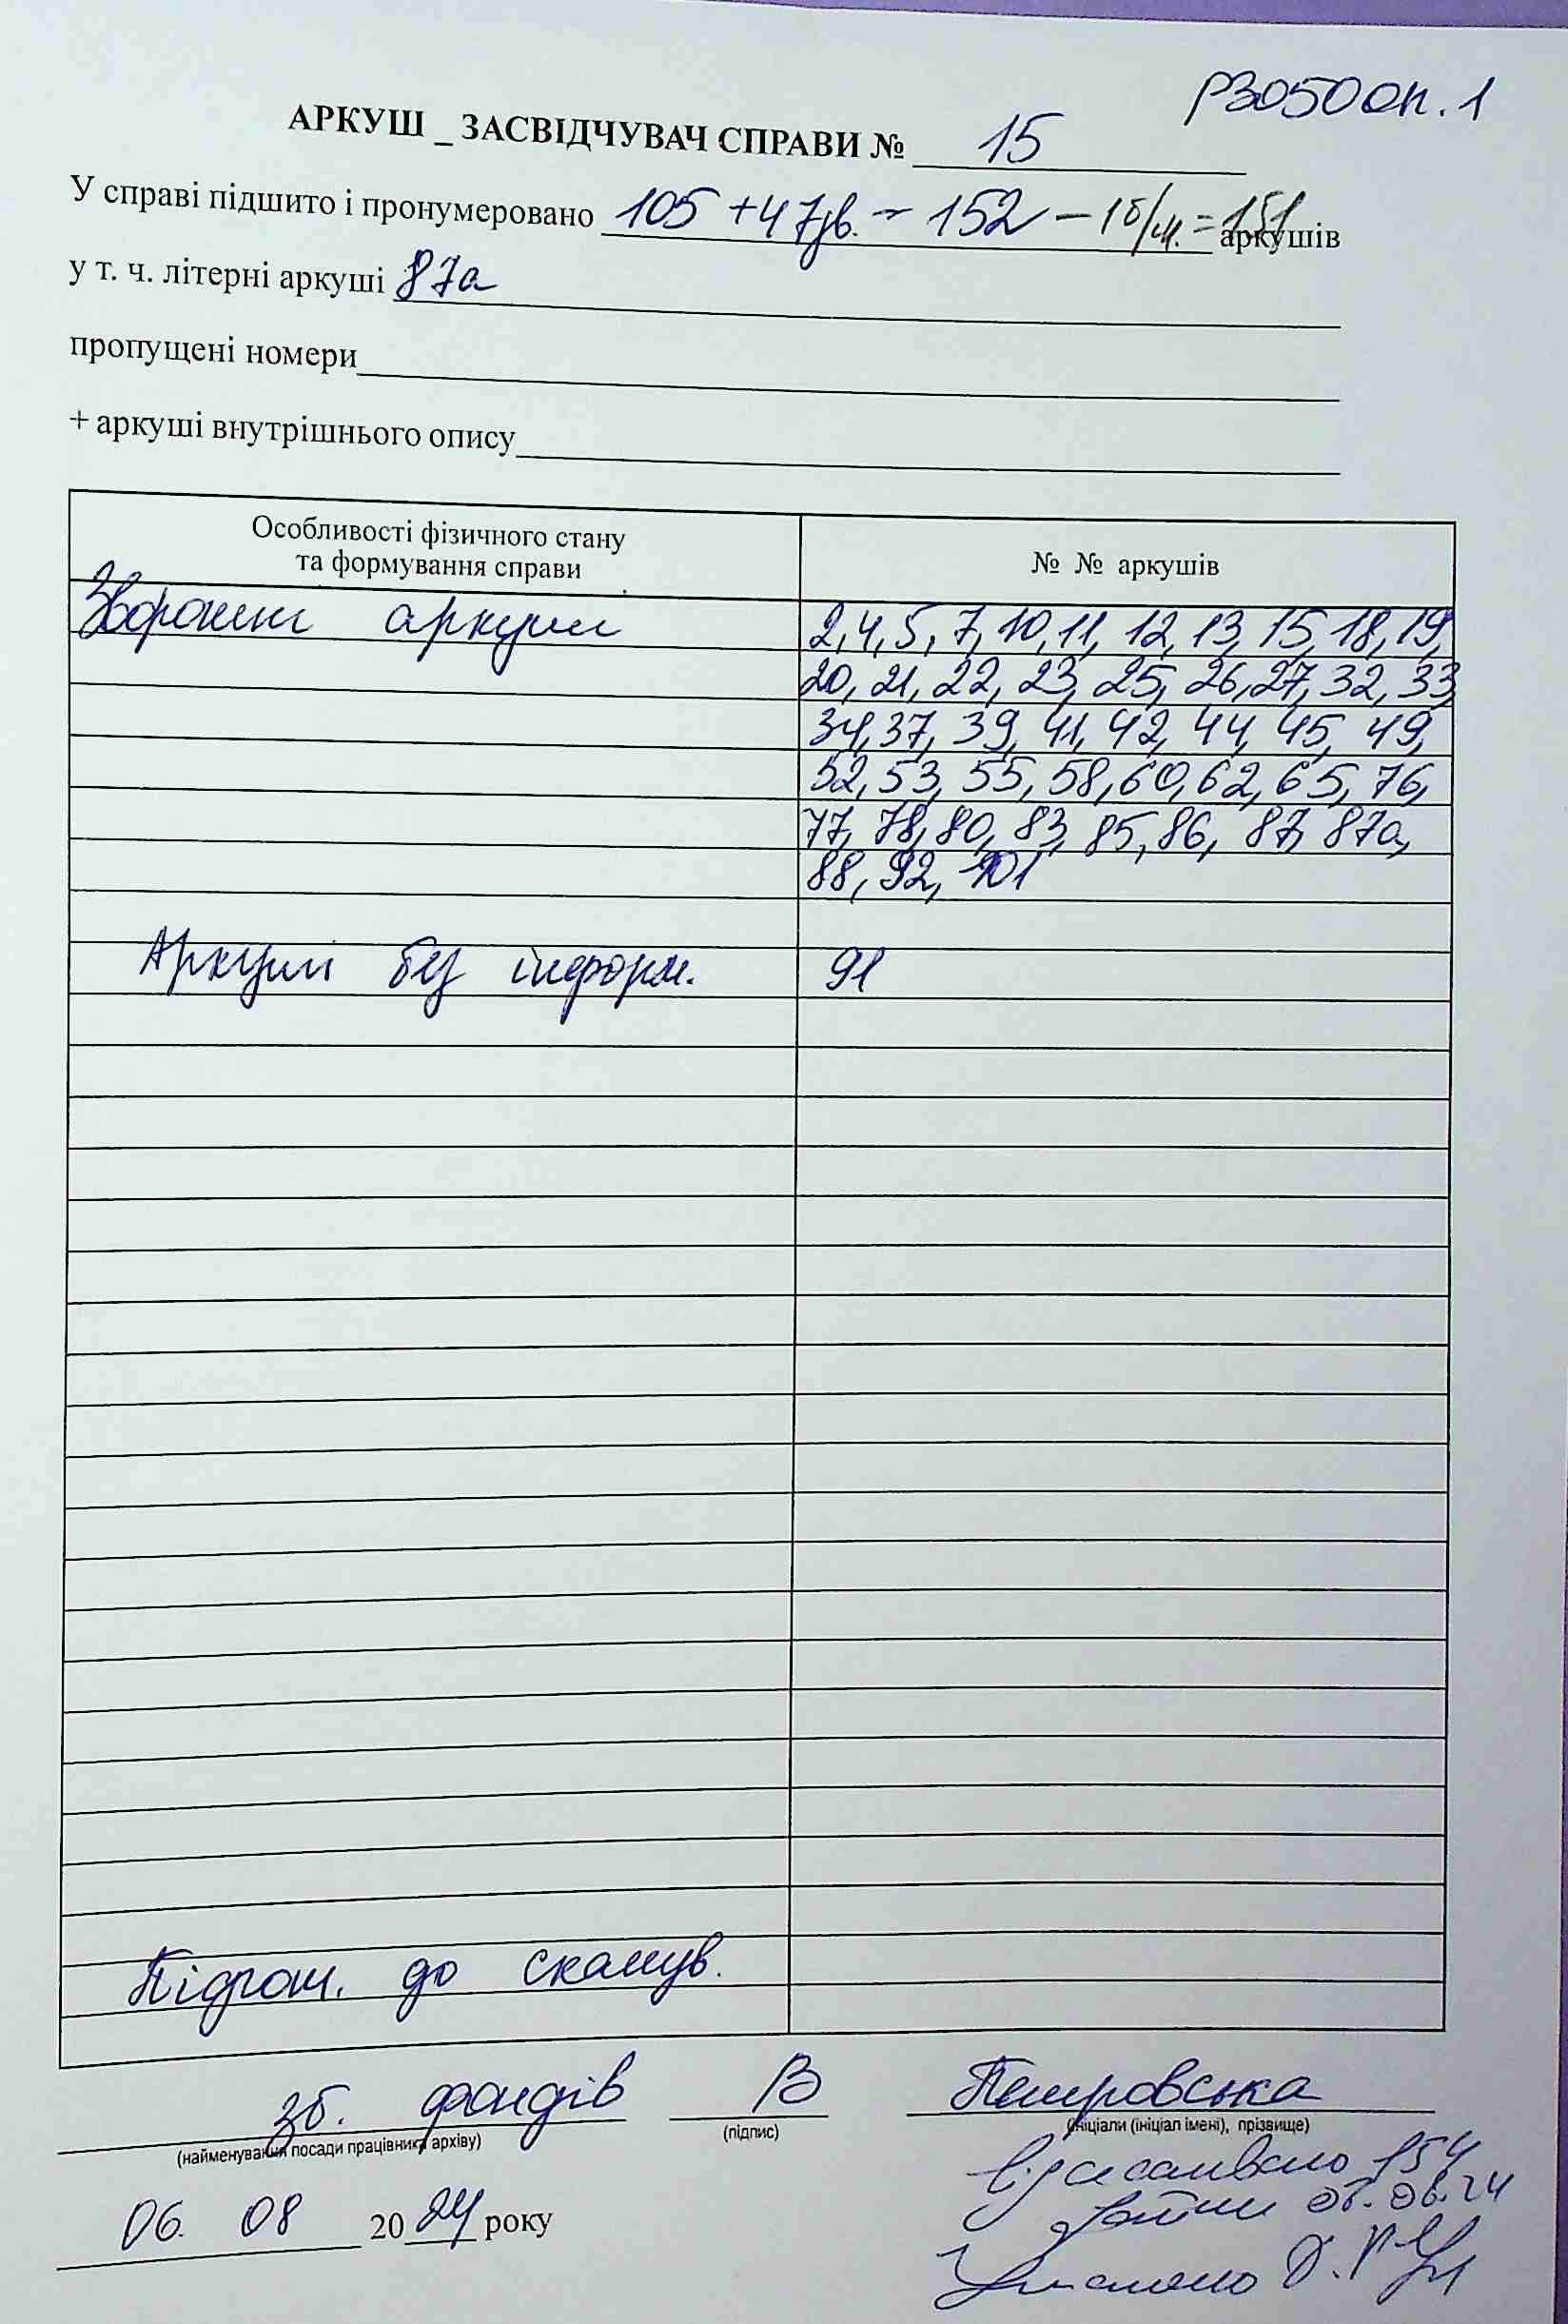 Р3050 оп. 1
АРКУШ _ ЗАСВІДЧУВАЧ СПРАВИ № 15
У справі підшито і пронумеровано 105 + 47зв. = 152 – 1 б/м. = 151 аркушів
у т. ч. літерні аркуші 87а
пропущені номери
+ аркуші внутрішнього опису
Особливості фізичного стану
та формування справи
№ № аркушів
Зворотні аркуші 2, 4, 5, 7, 10, 11, 12, 13, 15, 18, 19,
20, 21, 22, 23, 25, 26, 27, 32, 33,
34, 37, 39, 41, 42, 44, 45, 49,
52, 53, 55, 58, 60, 62, 65, 76,
77, 78, 80, 83, 85, 86, 87, 87а,
88, 92, 101
Аркуші без інформ. 91
Підгот. до сканув.
зб. фондів В Петровська
(найменування посади працівника архіву) (підпис) (ініціали (ініціал імені), прізвище)
Відскановано 154
06. 08 2024 року
06.08.24